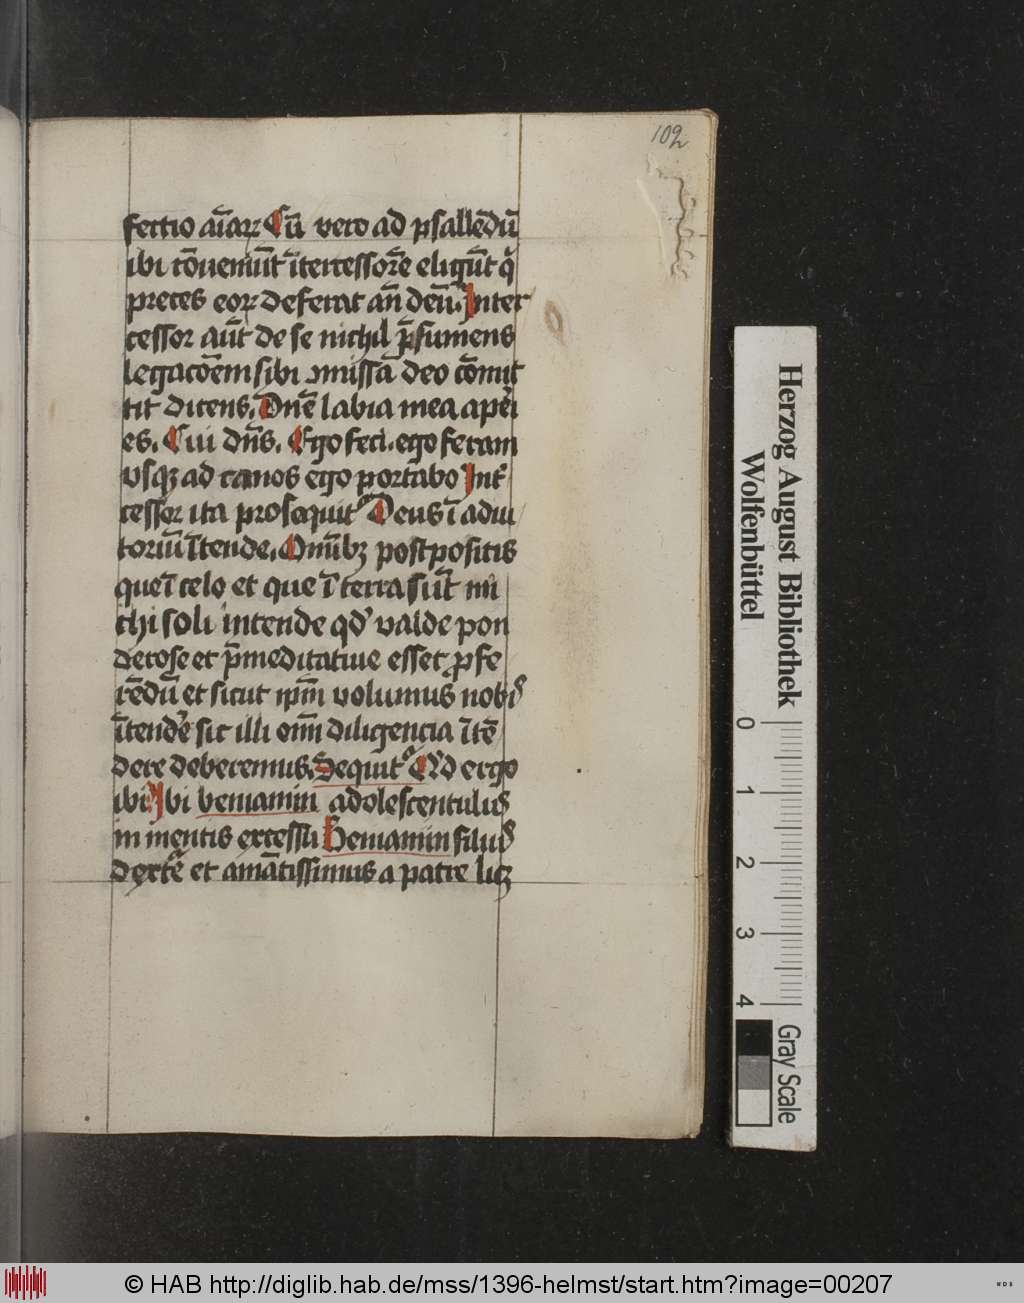 102
fectio aīaꝝ Cū vero ad psallēdū
ibi cōueniūt ītercessorē eligūt q̄
preces eoꝝ deferat añ deū. Inter
cessor aūt de se nichil p̄sumens
legacōem sibi ↄmissā deo cōmit
tit dicens. Dn̄e labia mea aperi
es. Cui dn̄s. Ego feci. ego feram
vsqꝫ ad canos ego portabo Int
cessor ita prosequit Deus ī adiu
toriū ītende. Omībꝫ postpositis
que ī celo et que ī terra sūt mi
chi soli intende qd valde pon
derose et p̄meditatiue esset ꝓfe
rēdū et sicut ip̄m volumus nobis
ītendere sic illi om̄i diligencia ītē
dere deberemus. Sequit Ad ergo
ibi. Ibi beniamin adolescentulus
in mentis excessu Beniamin filius
dextē et amātissimus a patre licꝫ
Herzog August Bibliothek
Wolfenbüttel
0 1 2 3 4
Gray Scale
© HAB http://diglib.hab.de/mss/1396-helmst/start.htm?image=00207
WDB